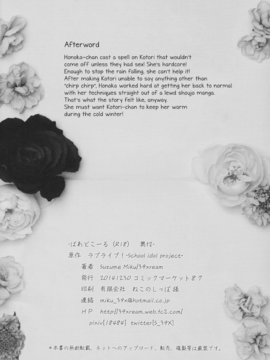 Afterword
Honoka-chan cast a spell on Kotori that wouldn't
come off unless they had sex! She's hardcore!
Enough to stop the rain falling, she can't help it!
After making Kotori unable to say anything other than
"chirp chirp", Honoka worked hard at getting her back to normal
with her techniques straight out of a lewd shoujo manga.
That's what the story felt like, anyway.
She must want Kotori-chan to keep her warm
during the cold winter!
-ばあどこーる (R18) 奥付-
原作 ラブライブ!-School idol project-
著者
発行 20141230 コミックマーケット87
印刷 有限会社 ねこのしっぽ 様
連絡
HP
pixiv twitter
*本書の無断転載、ネットへのアップロード、転売、複製等は厳禁です。